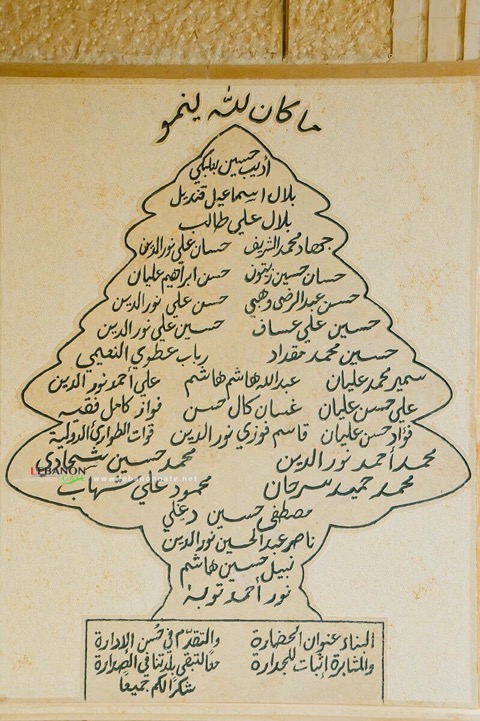 ما كان لله ينمو
أديب حسين بعلبكي
بلال اسماعيل قنديل
بلال علي طالب
جهاد محمد الشريف حسان علي نور الدين
حسان حسين زيتون حسن ابراهيم عليان
حسن عبد الرضى وهبي حسن علي نور الدين
حسين علي عساف حسين علي نور الدين
حسين محمد مقداد رباب عطوي النعيمي
سمير محمد عليان عبدالله هاشم هاشم علي أحمد نور الدين
علي حسن عليان غسان كال حسن فواز كامل فقيه
فؤاد حسن عليان قاسم فوزي نور الدين قوات الطوارئ الدولية
محمد أحمد نور الدين محمد حسين شحادي
محمد حميد سرحان محمود علي شهاب
LEBANON GATE www.lebanongate.net
مصطفى حسين دغلي
ناصر عبد الحسين نور الدين
نبيل حسين هاشم
نور أحمد توبة
البناء عنوان الحضارة والتقدّم في حُسن الإدارة
والمثابرة إثبات للجدارة معاً لتبقى بلدتنا في الصدارة
شكراً لكم جميعاً